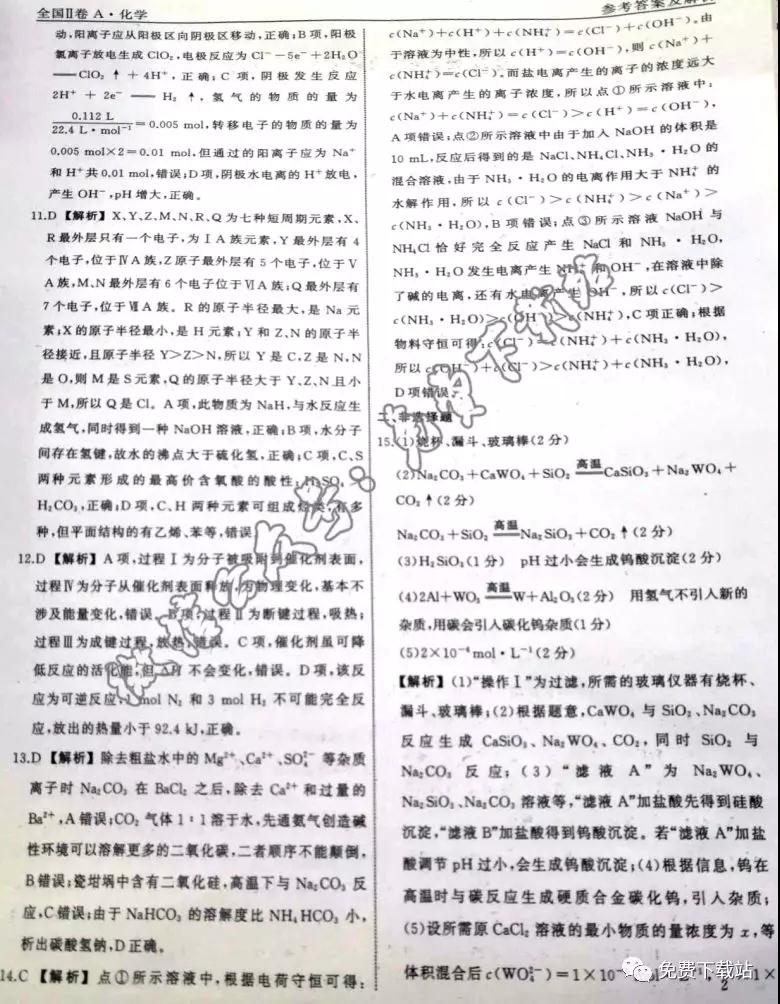 全国Ⅱ卷A·化学
参考答案及解析
动,阳离子应从阳极区向阴极区移动,正确;B项,阳极
氯离子放电生成ClO₂,电极反应为Cl⁻—5e⁻+2H₂O
══ClO₂↑+4H⁺,正确;C项,阴极发生反应
2H⁺+2e⁻══H₂↑,氢气的物质的量为
0.112 L/22.4 L·mol⁻¹=0.005 mol,转移电子的物质的量为
0.005 mol×2=0.01 mol,但通过的阳离子应为Na⁺
和H⁺共0.01 mol,错误;D项,阴极水电离的H⁺放电,
产生OH⁻,pH增大,正确。
11.D【解析】X、Y、Z、M、N、R、Q为七种短周期元素,X、
R最外层只有一个电子,为ⅠA族元素,Y最外层有4
个电子,位于ⅣA族,Z原子最外层有5个电子,位于Ⅴ
A族,M、N最外层有6个电子位于ⅥA族;Q最外层有
7个电子,位于ⅦA族。R的原子半径最大,是Na元
素;X的原子半径最小,是H元素;Y和Z、N的原子半
径接近,且原子半径Y>Z>N,所以Y是C,Z是N,N
是O,则M是S元素,Q的原子半径大于Y、Z、N且小
于M,所以Q是Cl。A项,此物质为NaH,与水反应生
成氢气,同时得到一种NaOH溶液,正确;B项,水分子
间存在氢键,故水的沸点大于硫化氢,正确;C项,C、S
两种元素形成的最高价含氧酸的酸性:H₂SO₄>
H₂CO₃,正确;D项,C、H两种元素可组成烃类,有多
种,但平面结构的有乙烯、苯等,错误。
12.D【解析】A项,过程Ⅰ为分子被吸附到催化剂表面,
过程Ⅳ为分子从催化剂表面释放,为物理变化,基本不
涉及能量变化,错误。B项,过程Ⅱ为断键过程,吸热;
过程Ⅲ为成键过程,放热,错误。C项,催化剂虽可降
低反应的活化能,但ΔH不会变化,错误。D项,该反
应为可逆反应,1 mol N₂和3 mol H₂不可能完全反
应,放出的热量小于92.4 kJ,正确。
13.D【解析】除去粗盐水中的Mg²⁺、Ca²⁺、SO₄²⁻等杂质
离子时Na₂CO₃在BaCl₂之后,除去Ca²⁺和过量的
Ba²⁺,A错误;CO₂气体1∶1溶于水,先通氨气创造碱
性环境可以溶解更多的二氧化碳,二者顺序不能颠倒,
B错误;瓷坩埚中含有二氧化硅,高温下与Na₂CO₃反
应,C错误;由于NaHCO₃的溶解度比NH₄HCO₃小,
析出碳酸氢钠,D正确。
14.C【解析】点①所示溶液中,根据电荷守恒可得:
c(Na⁺)+c(H⁺)+c(NH₄⁺)=c(Cl⁻)+c(OH⁻)。由
于溶液为中性,所以c(H⁺)=c(OH⁻),则c(Na⁺)+
c(NH₄⁺)=c(Cl⁻)。而盐电离产生的离子的浓度远大
于水电离产生的离子浓度,所以点①所示溶液中:
c(Na⁺)+c(NH₄⁺)=c(Cl⁻)>c(H⁺)=c(OH⁻),
A项错误;点②所示溶液中由于加入NaOH的体积是
10 mL,反应后得到的是NaCl、NH₄Cl、NH₃·H₂O的
混合溶液,由于NH₃·H₂O的电离作用大于NH₄⁺的
水解作用,所以c(Cl⁻)>c(NH₄⁺)>c(Na⁺)>
c(NH₃·H₂O),B项错误;点③所示溶液NaOH与
NH₄Cl恰好完全反应产生NaCl和NH₃·H₂O,
NH₃·H₂O发生电离产生NH₄⁺和OH⁻,在溶液中除
了碱的电离,还有水电离产生OH⁻,所以c(Cl⁻)>
c(NH₃·H₂O)>c(OH⁻)>c(NH₄⁺),C项正确;根据
物料守恒可得:c(Cl⁻)=c(NH₄⁺)+c(NH₃·H₂O),
所以c(OH⁻)+c(Cl⁻)>c(NH₄⁺)+c(NH₃·H₂O),
D项错误。
二、非选择题
15.(1)烧杯、漏斗、玻璃棒(2分)
(2)Na₂CO₃+CaWO₄+SiO₂ 高温══ CaSiO₃+Na₂WO₄+
CO₂↑(2分)
Na₂CO₃+SiO₂ 高温══ Na₂SiO₃+CO₂↑(2分)
(3)H₂SiO₃(1分) pH过小会生成钨酸沉淀(2分)
(4)2Al+WO₃ 高温══ W+Al₂O₃(2分) 用氢气不引入新的
杂质,用碳会引入碳化钨杂质(1分)
(5)2×10⁻⁴mol·L⁻¹(2分)
【解析】(1)“操作Ⅰ”为过滤,所需的玻璃仪器有烧杯、
漏斗、玻璃棒;(2)根据题意,CaWO₄与SiO₂、Na₂CO₃
反应生成CaSiO₃、Na₂WO₄、CO₂,同时SiO₂与
Na₂CO₃反应;(3)“滤液A”为Na₂WO₄、
Na₂SiO₃、Na₂CO₃溶液等,“滤液A”加盐酸先得到硅酸
沉淀,“滤液B”加盐酸得到钨酸沉淀。若“滤液A”加盐
酸调节pH过小,会生成钨酸沉淀;(4)根据信息,钨在
高温时与碳反应生成硬质合金碳化钨,引入杂质;
(5)设所需原CaCl₂溶液的最小物质的量浓度为x,等
体积混合后c(WO₄²⁻)=1×10⁻
1×
免费下载站
2